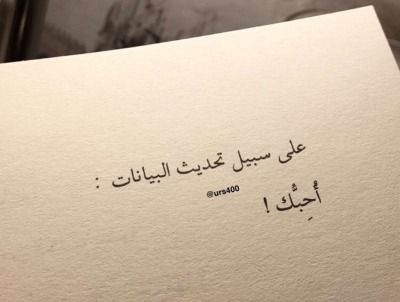 على سبيل تحديث البيانات :
@urs400
أُحِبُّك !